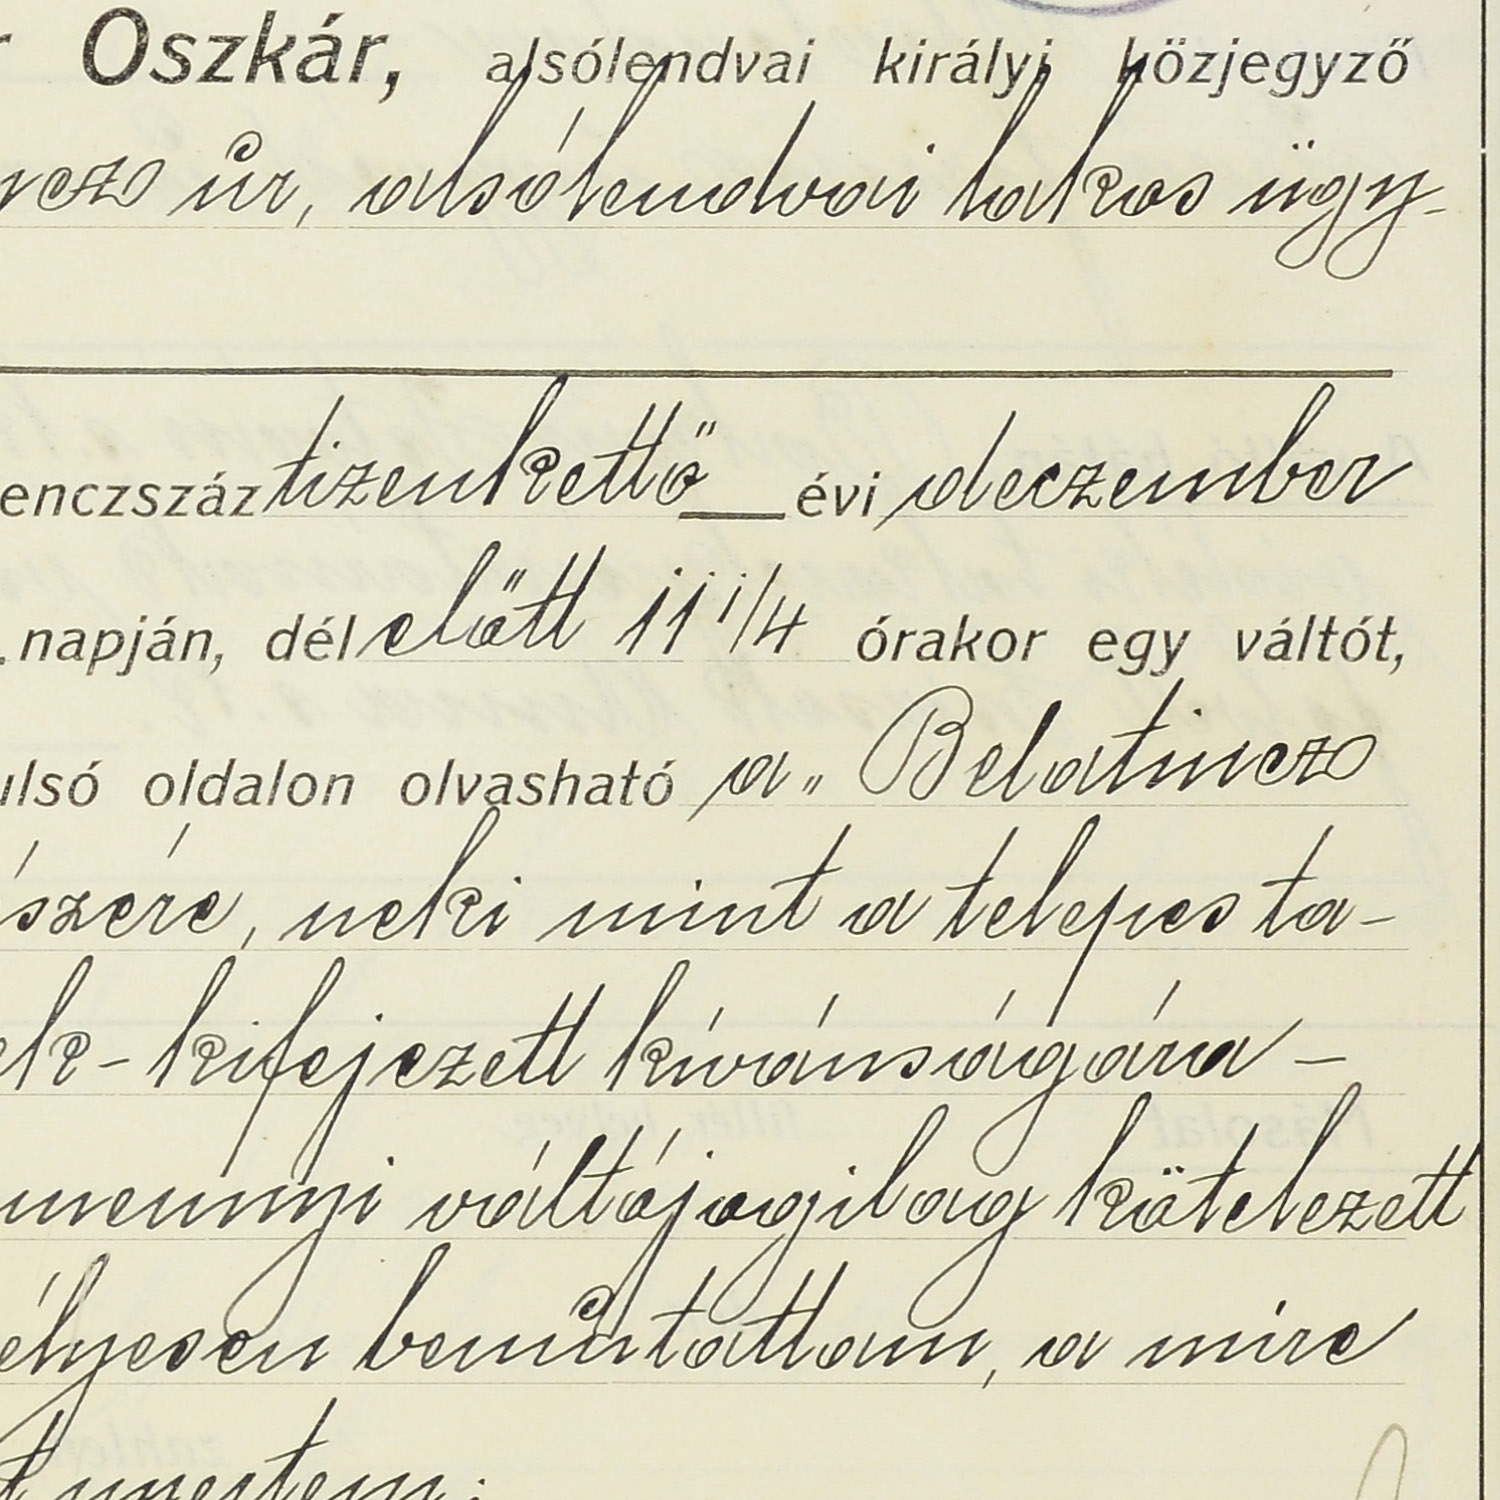 Oszkár, alsólendvai királyi közjegyző
úr, alsólendvai lakos ügy-
enczszáz tizenkettő évi deczember
napján, dél előtt 11 1/4 órakor egy váltót,
ulsó oldalon olvasható a „Belatincz
szére, neki mint a telepes ta-
ek - kifejezett kívánságára -
mennyi váltójogilag kötelezett
élyesen bemutattam, a mire
t nyertem: